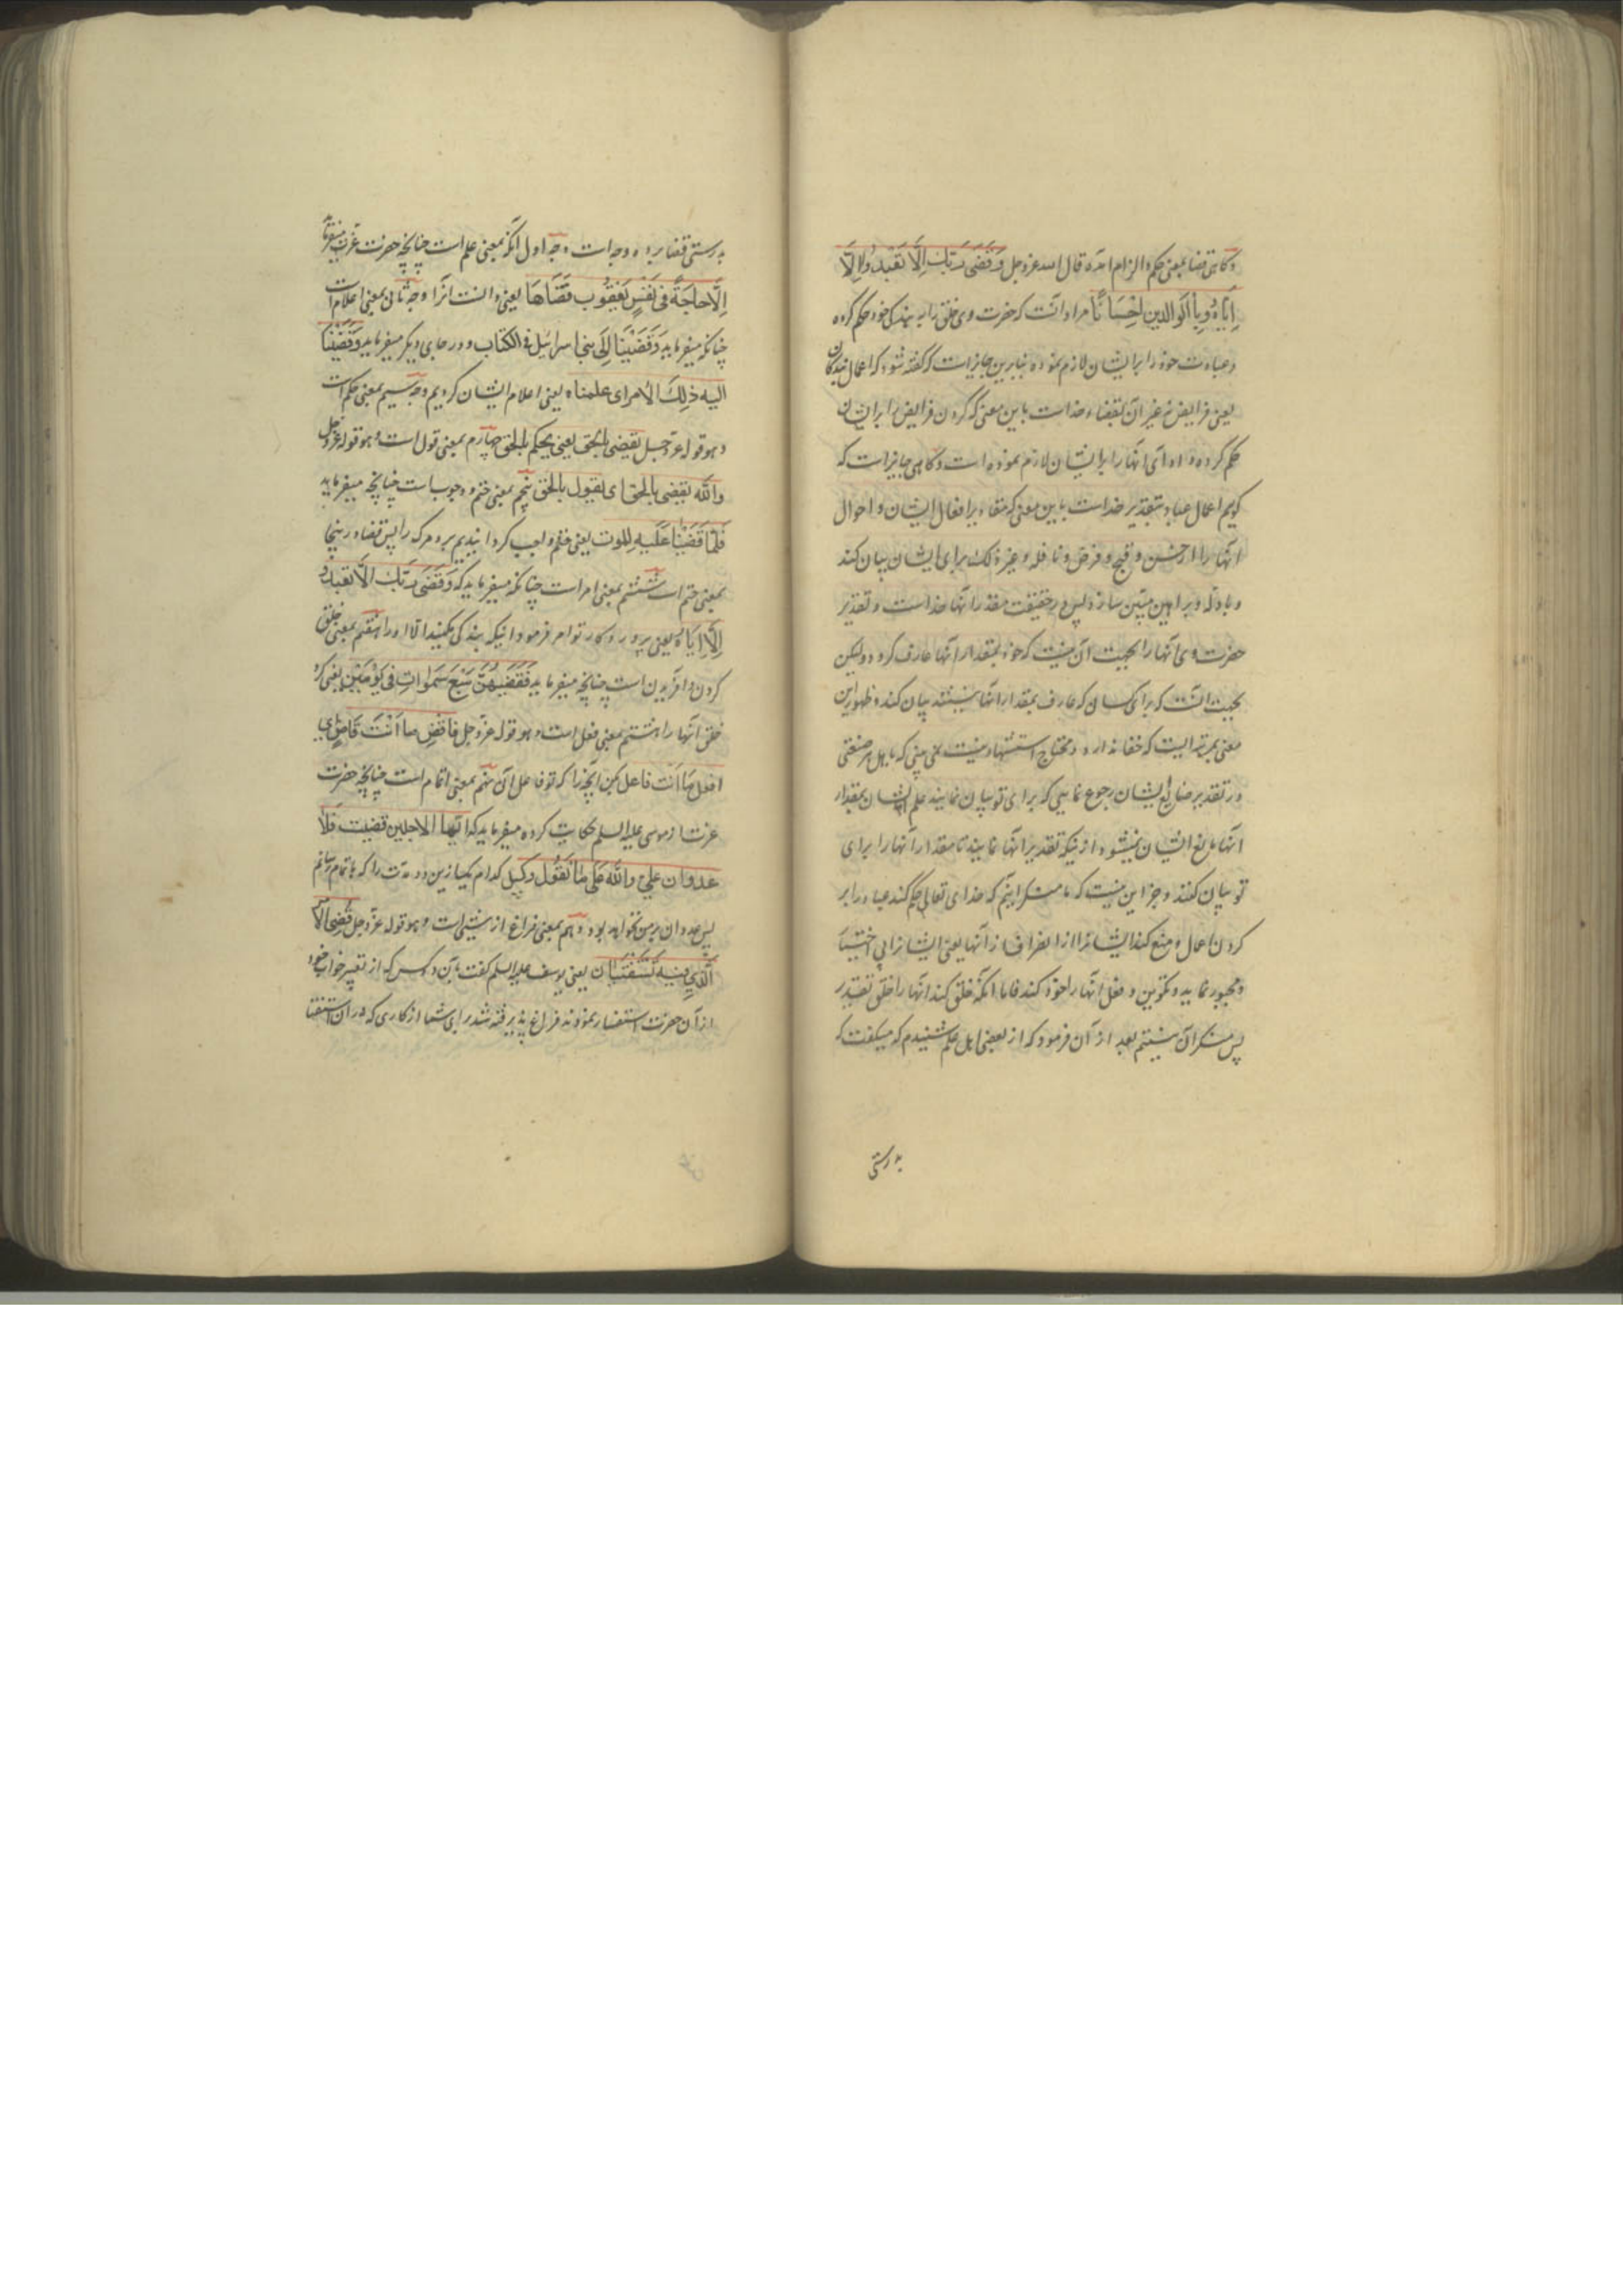 وکاهی قضا بمعنی حکم والزام امده قال الله عزوجل وَقَضَی رَبُّكَ اَلَّا تَعْبُدُوا اِلَّا
اِیَّاهُ وَبِالْوَالِدین اِحْسَانًا مراد انست که حضرت وی خلق را به بندکی خود حکم کرده
وعبادت خود را برایشان لازم نموده بنابرین جایز است که کفته شود که اعمال بندکان
یعنی فرایض نه غیر آن بقضاء خدا است باین معنی که کردن فرایض را برایشان
حکم کرده و ادای انها را برایشان لازم نموده است وکاهی جایز است که
کویم اعمال عباد بتقدیر خدا است باین معنی که مقادیر افعال ایشان و احوال
انها را از حسن و قبح و فرض و نافله و غیر ذلک برای ایشان بیان کند
و بادله و براهین مبین سازد پس در حقیقت مقدر انها خدا است و تقدیر
حضرت وی انها را بجهت آن نیست که خود بمقدار انها عارف کردد ولیکن
بجهت انست که برای کسان که عارف بمقدار انها نیستند بیان کند و ظهور این
معنی بمرتبه ایست که خفا ندارد و محتاج استشهاد نیست نمی بینی که باهل هر صنعتی
در تقدیر صنایع ایشان رجوع نمایی که برای تو بیان نمایند علم ایشان بمقدار
انها مانع ایشان نمیشود از اینکه تقدیر انها نمایند تا مقدار آنها را برای
تو بیان کنند و جز این نیست که ما منکر اینیم که خدای تعالی حکم کند عباد را بر
کردن اعمال و منع کند ایشانرا از انصراف از آنها یعنی ایشانرا بی اختیار
و مجبور نماید و تکوین و فعل انها را خود کند فاما انکه خلق کند انها را خلق تقدیر
پس منکر آن نیستیم بعد از آن فرمود که از بعضی اهل علم شنیدم که میکفت که
بدرستی
بدرستی قضا بر ده وجه است وجه اول انکه بمعنی علم است چنانچه حضرت عزت میفرماید
اِلَّا حَاجَةً فی نَفْسِ یَعْقُوبَ قَضَاهَا یعنی دانست انرا وجه ثانی بمعنی اعلام است
چنانکه میفرماید وَقَضَیْنَا اِلَی بنی اسرائیل فی الکتاب و در جای دیکر میفرماید وَقَضَیْنَا
الیه ذلِكَ الاَمر ای علمناه یعنی اعلام ایشان کردیم وجه سیم بمعنی حکم است
و هو قوله عزّوجل یقضی بالحق یعنی یحکم بالحق چهارم بمعنی قول است و هو قوله عزوجل
والله یقضی بالحق ای یقول بالحق پنجم بمعنی ختم و وجوب است چنانچه میفرماید
فَلَمَّا قَضَیْنَا عَلَیْهِ الموت یعنی واجب کردانیدیم برو مرک را پس قضا در اینجا
بمعنی ختم است ششم بمعنی امر است چنانکه میفرماید که وَقَضَی رَبُّكَ اَلَّا تَعْبُدُوا
اِلَّا اِیَّاهُ یعنی پروردکار تو امر فرمود اینکه بندکی مکنید الا او را هفتم بمعنی خلق
کردن و افریدن است چنانچه میفرماید فَقَضَیهُنَّ سَبْعَ سَمَوَاتٍ فِی یَوْمَیْنِ یعنی کرد
خلق انها را هشتم بمعنی فعل است و هو قوله عزّوجل فَاقْضِ ما اَنْتَ قَاضٍ ای
افعل ما اَنْت فاعل بکن آنچه را که تو فاعل آن نهم بمعنی اتمام است چنانچه حضرت
عزت از موسی علیه السلم حکایت کرده میفرماید که ایّما الاجلین قضیت فلا
عدوان علیّ والله علی ما نقول وکیل کدام یک از این دو مدت را که باتمام رسانم
پس عدوان بر من نخواهد بود دهم بمعنی فراغ از شیئ است و هو قوله عزّوجل قُضِیَ الاَمْر
الَّذِی فِیهِ تَسْتَفْتِیَان یعنی یوسف علیه السلم کفت بآن دو کس که از تعبیر خواب خود
از آن حضرت استفسار نمودند فراغ پذیرفته شد برای شما از کاری که در آن استفتا